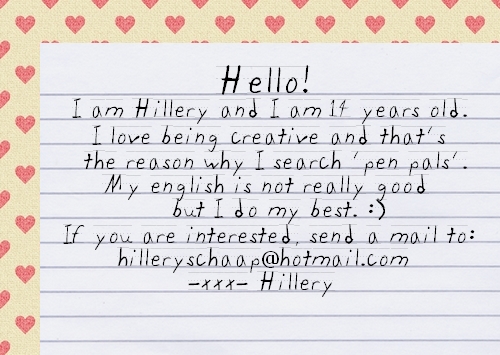 Hello!
I am Hillery and I am 14 years old.
I love being creative and that's
the reason why I search 'pen pals'.
My english is not really good
but I do my best. :)
If you are interested, send a mail to:
hilleryschaap@hotmail.com
-xxx- Hillery